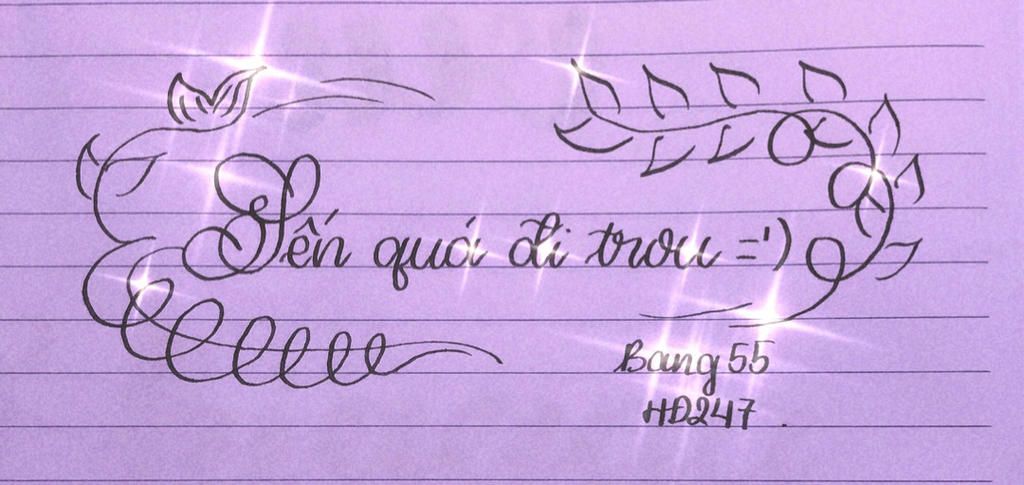 Sến quá đi trơu =')
Bang 55
HĐ247